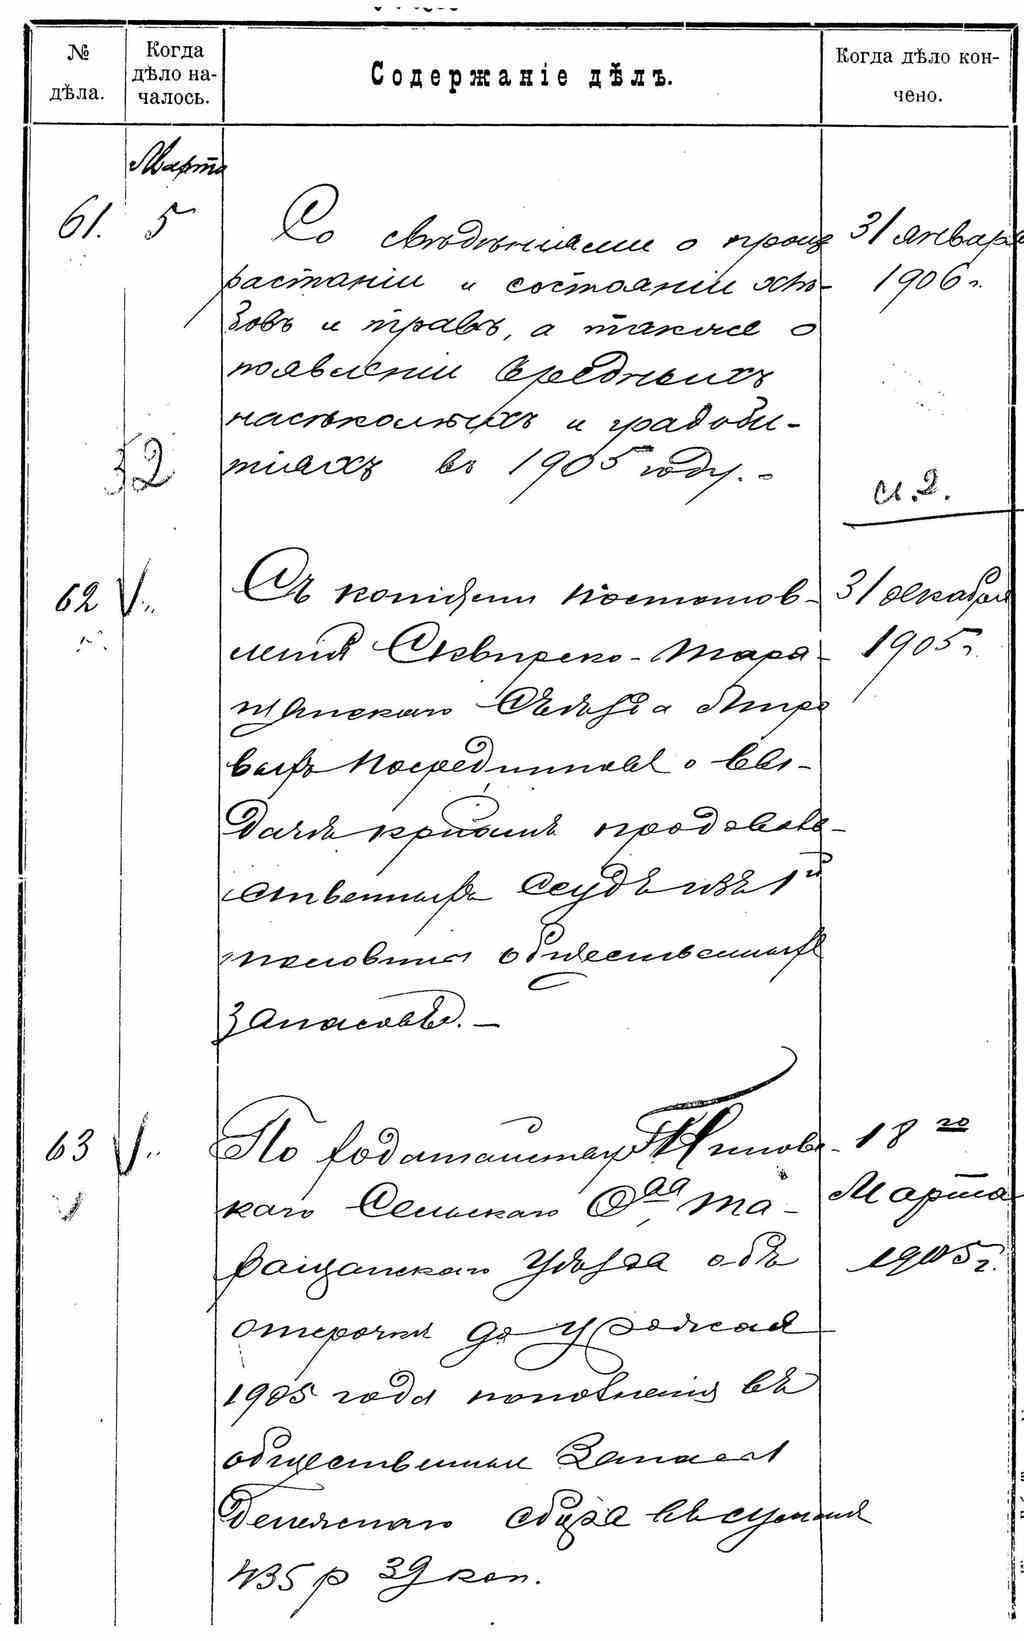 № дѣла.
Когда дѣло началось.
Содержаніе дѣлъ.
Когда дѣло кончено.
Марта
61. 5
Со свѣдѣніями о произ
растаніи и состояніи хлѣ-
бовъ и травъ, а также о
появленіи вредныхъ
насѣкомыхъ и градоби-
тіяхъ въ 1905 году.
31 января
1906 г.
32
62
Съ копіями постанов-
ленія Сквирско-Тара-
щанскаго Съѣзда Миро
выхъ Посредниковъ о вы-
дачѣ крѣамъ продоволь-
ственныхъ ссудъ изъ 1й
половины общественныхъ
запасовъ.
31 декабря
1905 г.
63
По ходатайству
каго Сельскаго Оваа, Та-
ращанскаго уѣзда объ
отсрочкѣ до урожая
1905 года пополненія въ
общественные запасы
денежнаго сбора въ суммѣ
435 р 39 коп.
18го
Марта
1905 г.